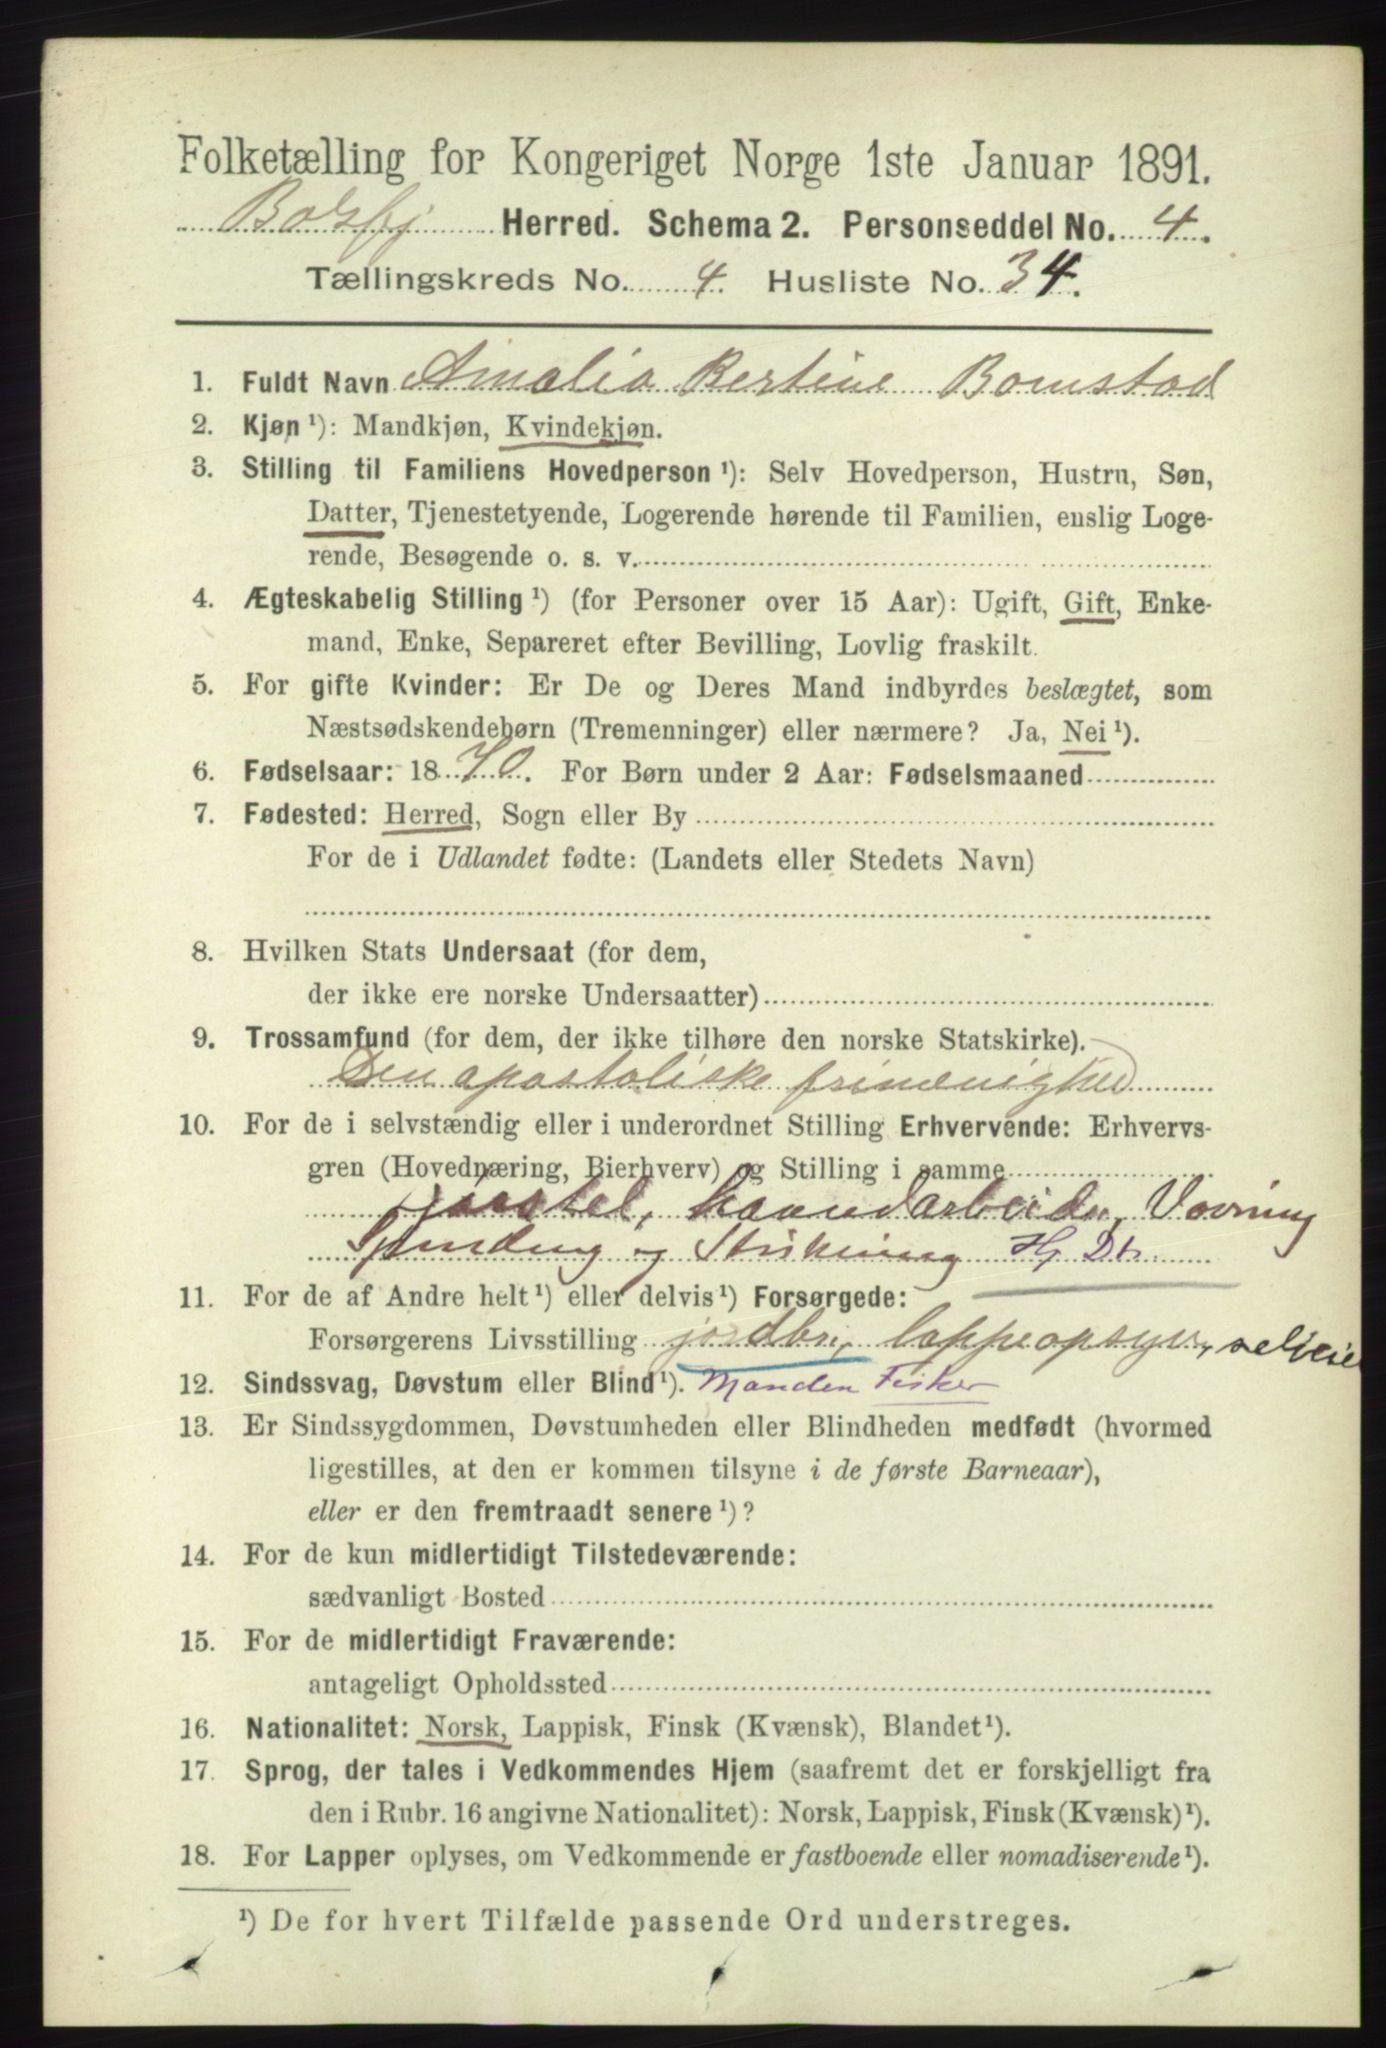 Folketælling for Kongeriget Norge 1ste Januar 1891.
Balsfj Herred. Schema 2. Personseddel No. 4.
Tællingskreds No. 4. Husliste No. 34.
1. Fuldt Navn Amalia Bertine Bomstad
2. Kjøn ¹): Mandkjøn, Kvindekjøn.
3. Stilling til Familiens Hovedperson ¹): Selv Hovedperson, Hustru, Søn,
Datter, Tjenestetyende, Logerende hørende til Familien, enslig Loge-
rende, Besøgende o. s. v.
4. Ægteskabelig Stilling ¹) (for Personer over 15 Aar): Ugift, Gift, Enke-
mand, Enke, Separeret efter Bevilling, Lovlig fraskilt.
5. For gifte Kvinder: Er De og Deres Mand indbyrdes beslægtet, som
Næstsødskendebørn (Tremenninger) eller nærmere? Ja, Nei ¹).
6. Fødselsaar: 1870. For Børn under 2 Aar: Fødselsmaaned
7. Fødested: Herred, Sogn eller By
For de i Udlandet fødte: (Landets eller Stedets Navn)
8. Hvilken Stats Undersaat (for dem,
der ikke ere norske Undersaatter)
9. Trossamfund (for dem, der ikke tilhøre den norske Statskirke).
Den apostoliske frimenighed
10. For de i selvstændig eller i underordnet Stilling Erhvervende: Erhvervs-
gren (Hovednæring, Bierhverv) og Stilling i samme
haandarbeide, Vævning
Spinding og Strikning Hg Dtr.
11. For de af Andre helt ¹) eller delvis ¹) Forsørgede:
Forsørgerens Livsstilling jordbr, lappeopsyn,
12. Sindssvag, Døvstum eller Blind ¹). Manden Fisker
13. Er Sindssygdommen, Døvstumheden eller Blindheden medfødt (hvormed
ligestilles, at den er kommen tilsyne i de første Barneaar),
eller er den fremtraadt senere ¹)?
14. For de kun midlertidigt Tilstedeværende:
sædvanligt Bosted
15. For de midlertidigt Fraværende:
antageligt Opholdssted
16. Nationalitet: Norsk, Lappisk, Finsk (Kvænsk), Blandet ¹).
17. Sprog, der tales i Vedkommendes Hjem (saafremt det er forskjelligt fra
den i Rubr. 16 angivne Nationalitet): Norsk, Lappisk, Finsk (Kvænsk) ¹).
18. For Lapper oplyses, om Vedkommende er fastboende eller nomadiserende ¹).
¹) De for hvert Tilfælde passende Ord understreges.